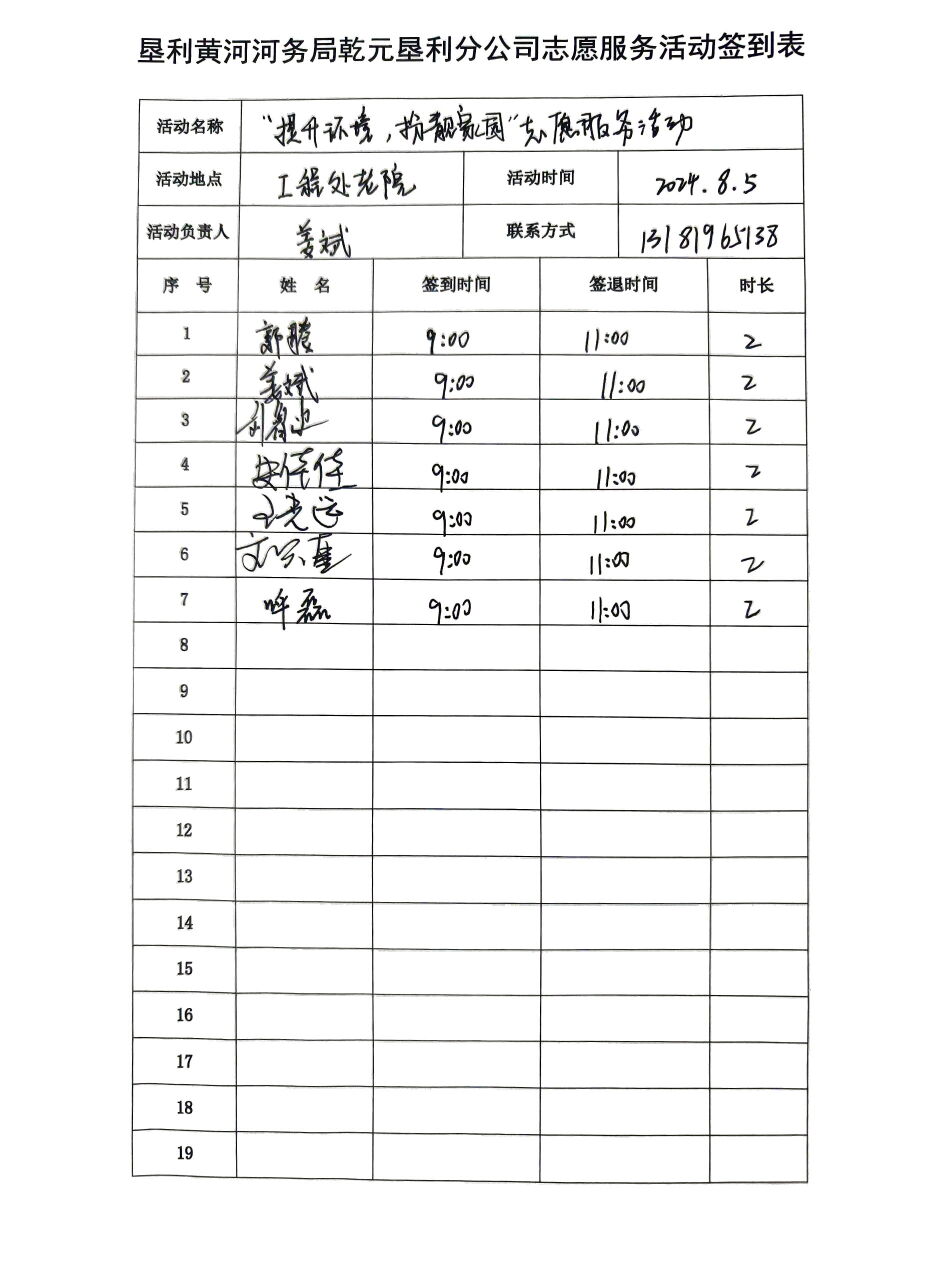 垦利黄河河务局乾元垦利分公司志愿服务活动签到表
活动名称 “提升环境，扮靓家园”志愿服务活动
活动地点 工程处老院 活动时间 2024.8.5
活动负责人 姜斌 联系方式 13181965138
序 号 姓 名 签到时间 签退时间 时长
1 郭腾 9:00 11:00 2
2 姜斌 9:00 11:00 2
3 刘 9:00 11:00 2
4 安佳佳 9:00 11:00 2
5 王光远 9:00 11:00 2
6 9:00 11:00 2
7 呼磊 9:00 11:00 2
8
9
10
11
12
13
14
15
16
17
18
19